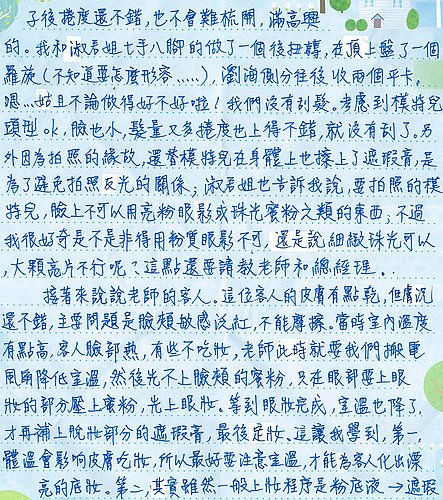 子後捲度還不錯，也不會難梳開，滿高興
的。我和淑君姐七手八腳的做了一個後扭轉，在頂上盤了一個
羅旋（不知道要怎麼形容.....），瀏海側分往後 收兩個平卡。
嗯...姑且不論做得好不好啦！我們沒有刮髮。考慮到模特兒
頭型ok，臉也小，髮量又多捲度也上得不錯，就沒有刮了。另
外因為拍照的緣故，還替模特兒在身體上也擦上了遮瑕膏，是
為了避免拍照反光的關係；淑君姐也告訴我說，要拍照的模
特兒，臉上不可以用亮粉眼影或珠光蜜粉之類的東西，不過
我很好奇是不是非得用粉質眼影不可，還是說細緻珠光可以
，大顆亮片不行呢？這點還要請教老師和總經理。
接著來說說老師的客人。這位客人的皮膚有點乾，但膚況
還不錯，主要問題是臉頰敏感泛紅，不能摩擦。當時室內溫度
有點高，客人臉部熱，有些不吃妝，老師此時就要我們搬電
風扇降低室溫，然後先不上臉頰的蜜粉，只在眼部要上眼
妝的部分壓上蜜粉，先上眼妝。等到眼妝完成，室溫也降了，
才再補上脫妝部分的遮瑕膏，最後定妝。這讓我學到，第一，
體溫會影响皮膚吃妝，所以最好要注意室溫，才能為客人化出漂
亮的底妝。第二，其實雖然一般上妝程序是粉底液→遮瑕